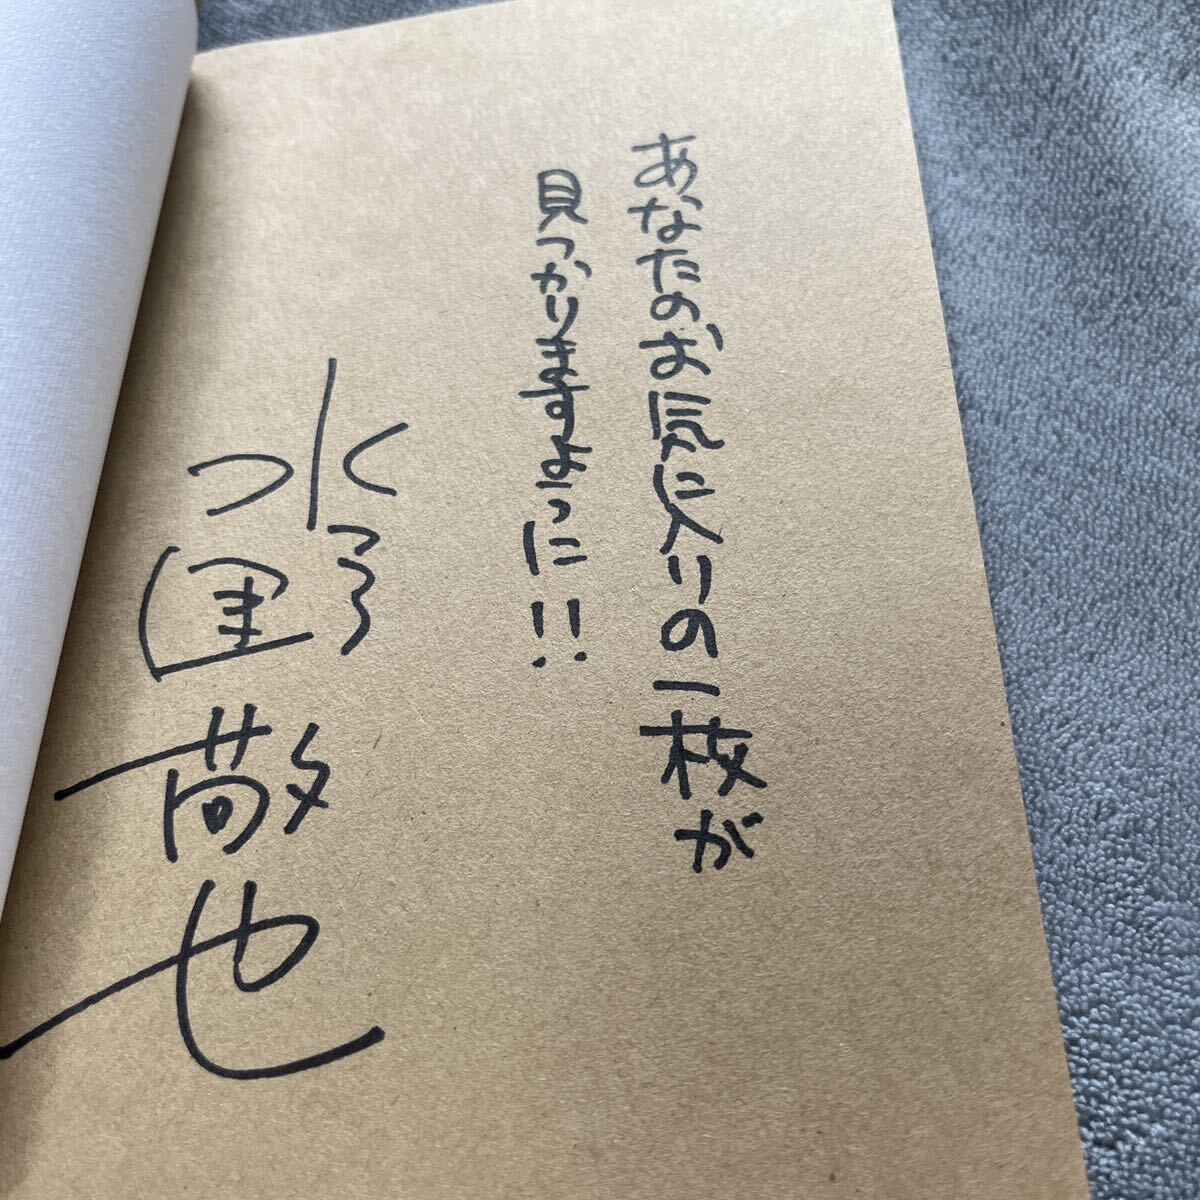 あなたのお気に入りの一枚が
見つかりますように!!
水野敬也